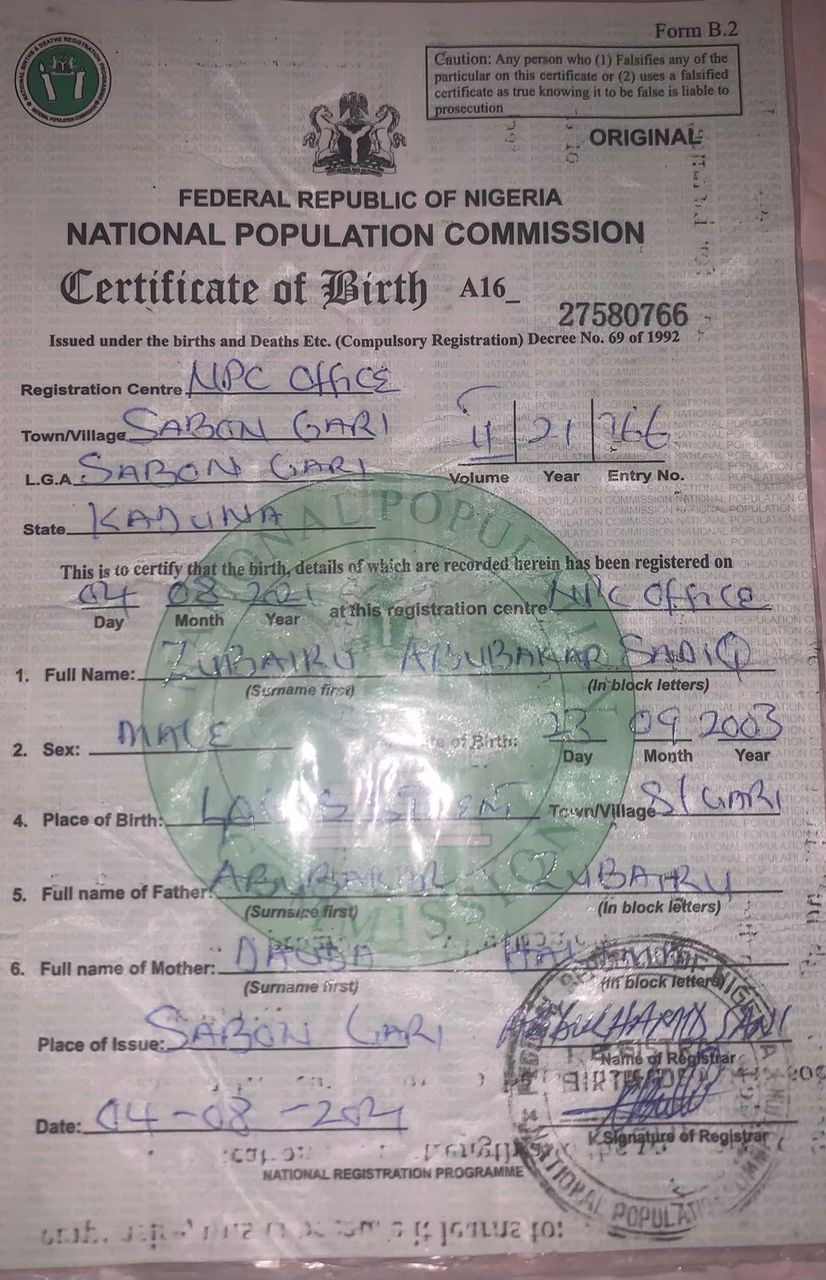 Form B.2
NATIONAL BIRTHS & DEATHS REGISTRATION PROGRAMME
NATIONAL POPULATION COMMISSION
Caution: Any person who (1) Falsifies any of the
particular on this certificate or (2) uses a falsified
certificate as true knowing it to be false is liable to
prosecution
ORIGINAL
FEDERAL REPUBLIC OF NIGERIA
NATIONAL POPULATION COMMISSION
Certificate of Birth A16_ 27580766
Issued under the births and Deaths Etc. (Compulsory Registration) Decree No. 69 of 1992
Registration Centre NPC OFFICE
Town/Village SABON GARI
21
L.G.A SABON GARI
Volume Year Entry No.
State KADUNA
This is to certify that the birth, details of which are recorded herein has been registered on
04 08 2021 at this registration centre NPC OFFICE
Day Month Year
1. Full Name: ZUBAIRU ABUBAKAR SADIQ
(Surname first) (In block letters)
2. Sex: MALE of Birth: 23 09 2003
Day Month Year
4. Place of Birth: Town/Village S/GARI
5. Full name of Father: ABUBAKAR ZUBAIRU
(Surname first) (In block letters)
6. Full name of Mother: DAUDA
(Surname first) (In block letters)
Place of Issue: SABON GARI SANI
Name of Registrar
Date: 04-08-2021
Signature of Registrar
NATIONAL REGISTRATION PROGRAMME